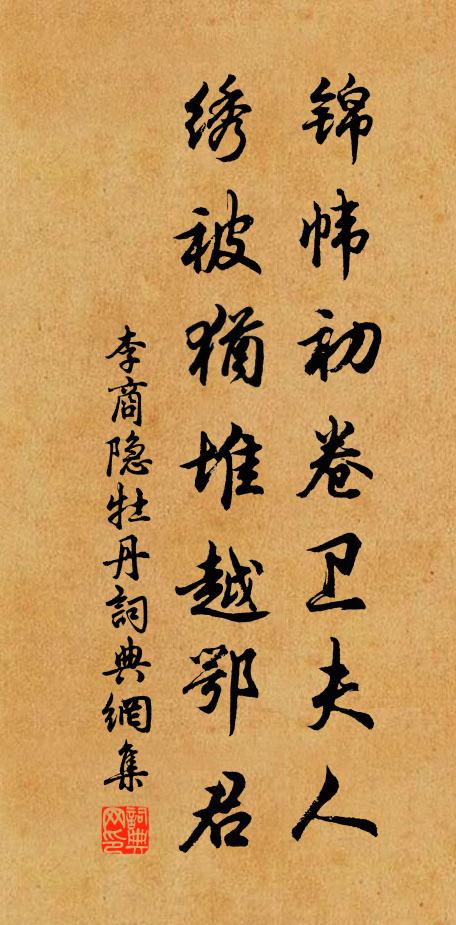 锦帏初卷卫夫人
绣被猶堆越鄂君
李商隐牡丹詞典網集
詞典网印